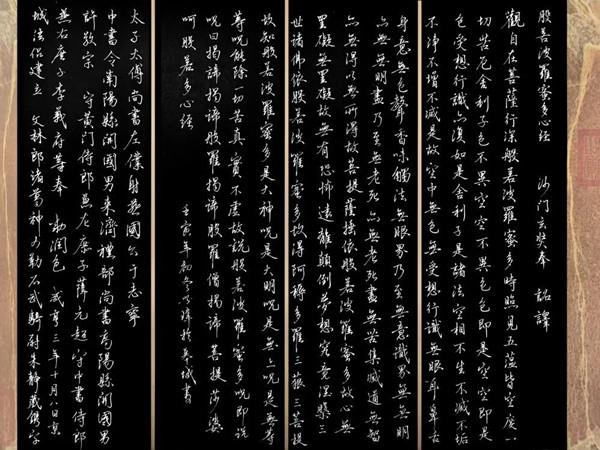 般若波羅蜜多心經 沙门玄奘奉 詔譯
觀自在菩薩行深般若波羅蜜多時照見五蘊皆空度一
切苦厄舍利子色不異空空不異色色即是空空即是
色受想行識亦復如是舍利子是諸法空相不生不滅不垢
不淨不增不減是故空中無色無受想行識無眼耳鼻舌
身意無色聲香味觸法無眼界乃至無意識界無無明
亦無無明盡乃至無老死亦無老死盡無苦集滅道無智
亦無得以無所得故菩提薩埵依般若波羅蜜多故心無
罣礙無罣礙故無有恐怖遠離顛倒夢想究竟涅槃三
世諸佛依般若波羅蜜多故得阿耨多羅三藐三菩提
故知般若波羅蜜多是大神呪是大明呪是無上呪是無等
等呪能除一切苦真實不虛故說般若波羅蜜多呪即說
呪曰揭諦揭諦般羅揭諦般羅僧揭諦菩提莎婆
呵般若多心經
壬寅年初冬 書
太子太傅尚書左僕射燕國公于志寧
中書令南陽縣開國男来濟禮部尚書高陽縣開國男
許敬宗 守黄门侍郎兼左庶子薛元超守中書侍郎
兼右庶子李義府等奉 勑潤色 咸亨三年十二月八日京
城法侣建立 文林郎諸葛神力勒石武騎尉朱靜藏鐫字